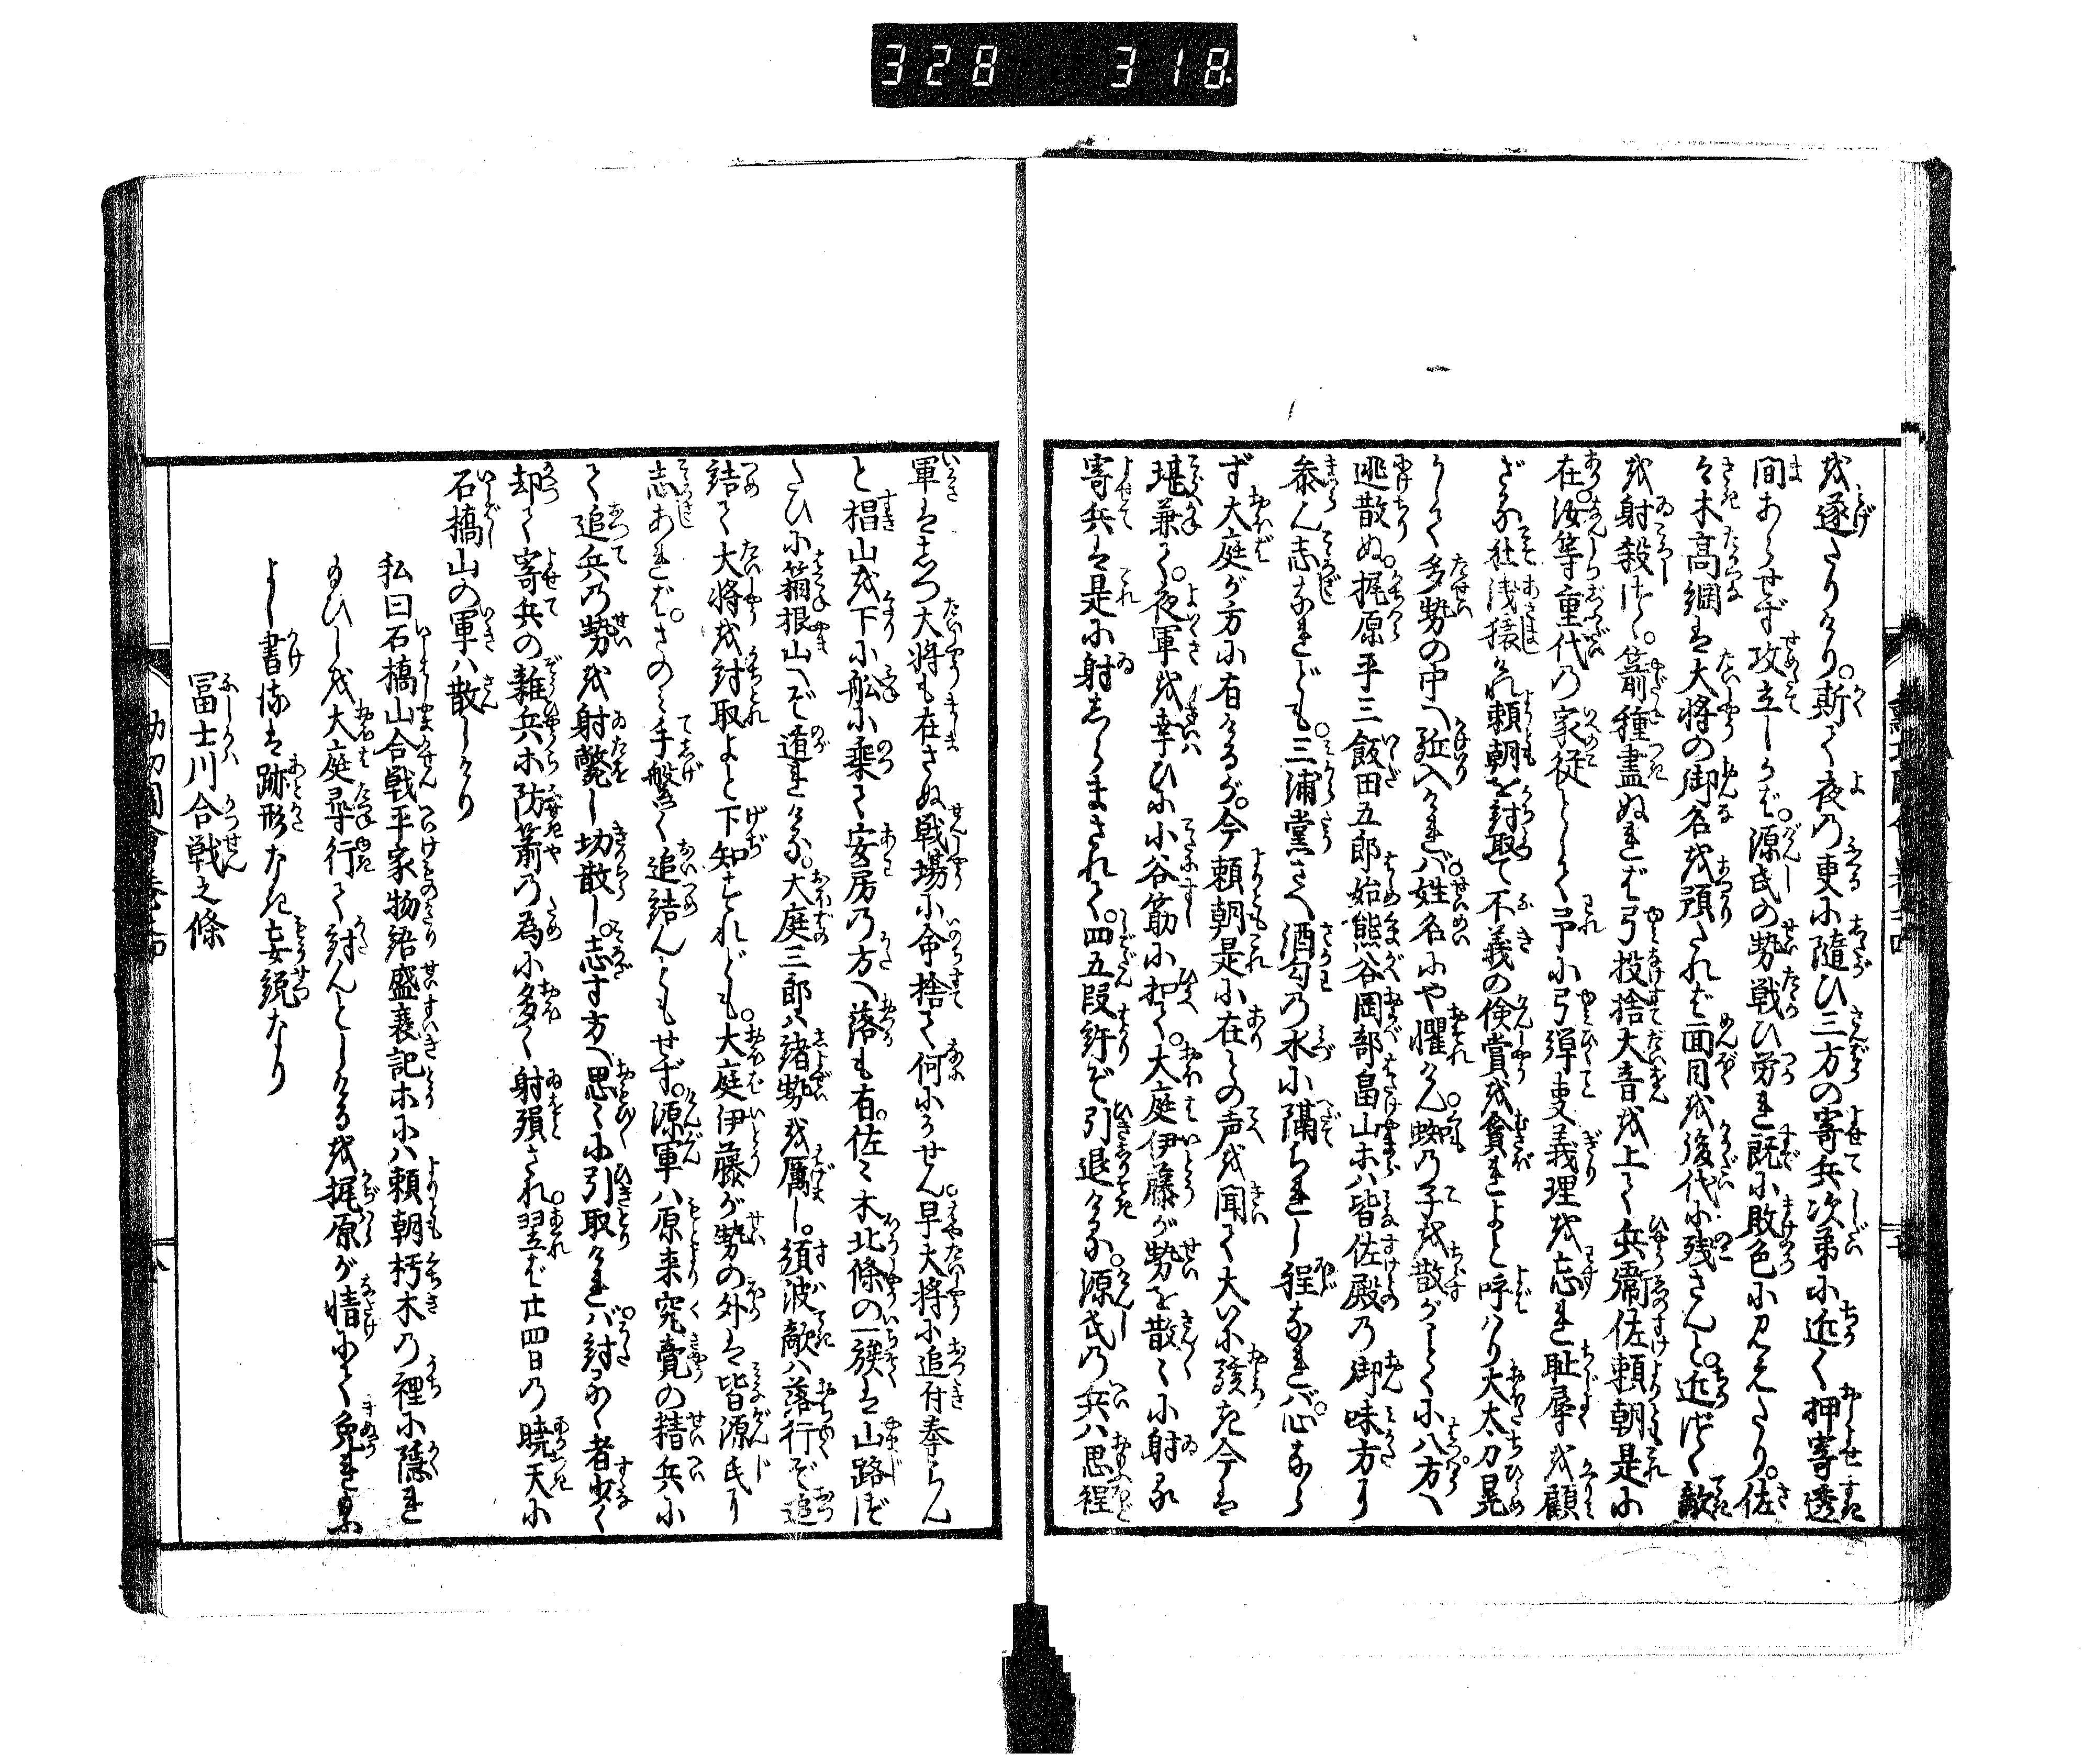 328 318
を遂たりけり。斯て夜の更に随ひ三方の寄兵次第に近く押寄透
間あらせず攻立しかば。源氏の勢戦ひ労れ既に敗色に見えたり。佐
々木高綱は大将の御名を預たれば面目を後代に残さんと。近づく敵
を射殺けく。箭種盡ぬれば弓投捨大音を上て兵衛佐頼朝是に
在。汝等重代の家従として予に弓弾事義理を忘れ耻辱を顧
ざる社浅猿けれ頼朝を討取て不義の倹賞を貪れよと呼はり大太刀晃
りして多勢の中へ蒐入ければ。姓名にや懼けん。蜘の子を散がごとくに八方へ
逃散ぬ。梶原平三飯田五郎始熊谷岡部畠山ホハ皆佐殿の御味方に
参ん志なれども。三浦党さへ酒匂の水に隔られし程なれバ。心ならず
ず大庭が方に有けるが。今頼朝是に在との声を聞て大いに駭き今は
堪兼て。夜軍を幸ひに小谷筋に扣へ。大庭伊藤が勢を散々に射る
寄兵は是に射しらまされて。四五段許ぞ引退ける。源氏の兵ハ思程
軍はしつ大将も在さぬ戦場に命捨て何にかせん。早大将に追付奉らん
と椙山を下に舩に乗て安房の方へ落も有。佐々木北條の一族は山路づ
たひに箱根山へぞ遁れける。大庭三郎ハ諸勢を厲し。須波敵ハ落行ぞ追
詰て大将を討取よと下知すれども。大庭伊藤が勢の外は皆源氏に
志あれば。さのミ手繁く追詰んともせず。源軍ハ原来究竟の精兵に
て追兵の勢を射斃し切散し。志す方へ思々に引取ければ。討るゝ者少く
却て寄兵の雑兵ホ防箭の為に多く射殞され。翌ば廿四日の暁天に
石橋山の軍ハ散しけり
私曰石橋山合戦平家物語盛衰記ホにハ頼朝朽木の裡に隠れ
ゐひしを大庭尋行て討んとしけるを梶原が情にて免れ
よし書るは跡形なき妄説なり
冨士川合戦之條